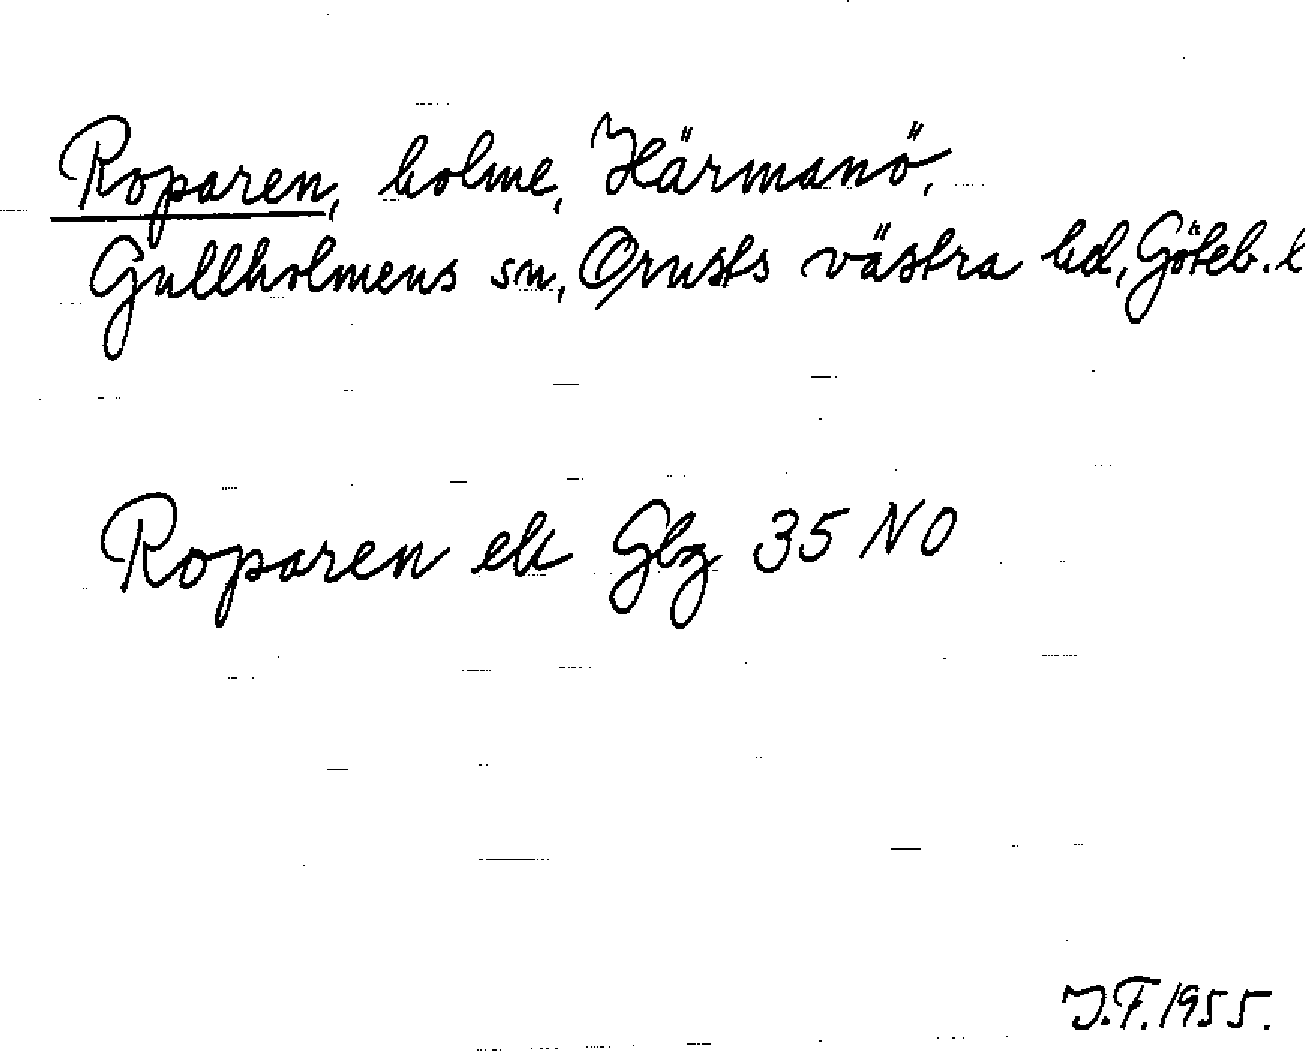 Roparen, holme, Härmanö,
Gullholmens sn, Orusts västra hd, Göteb. l
Roparen ek Gbg 35 NO
J.F. 1955.